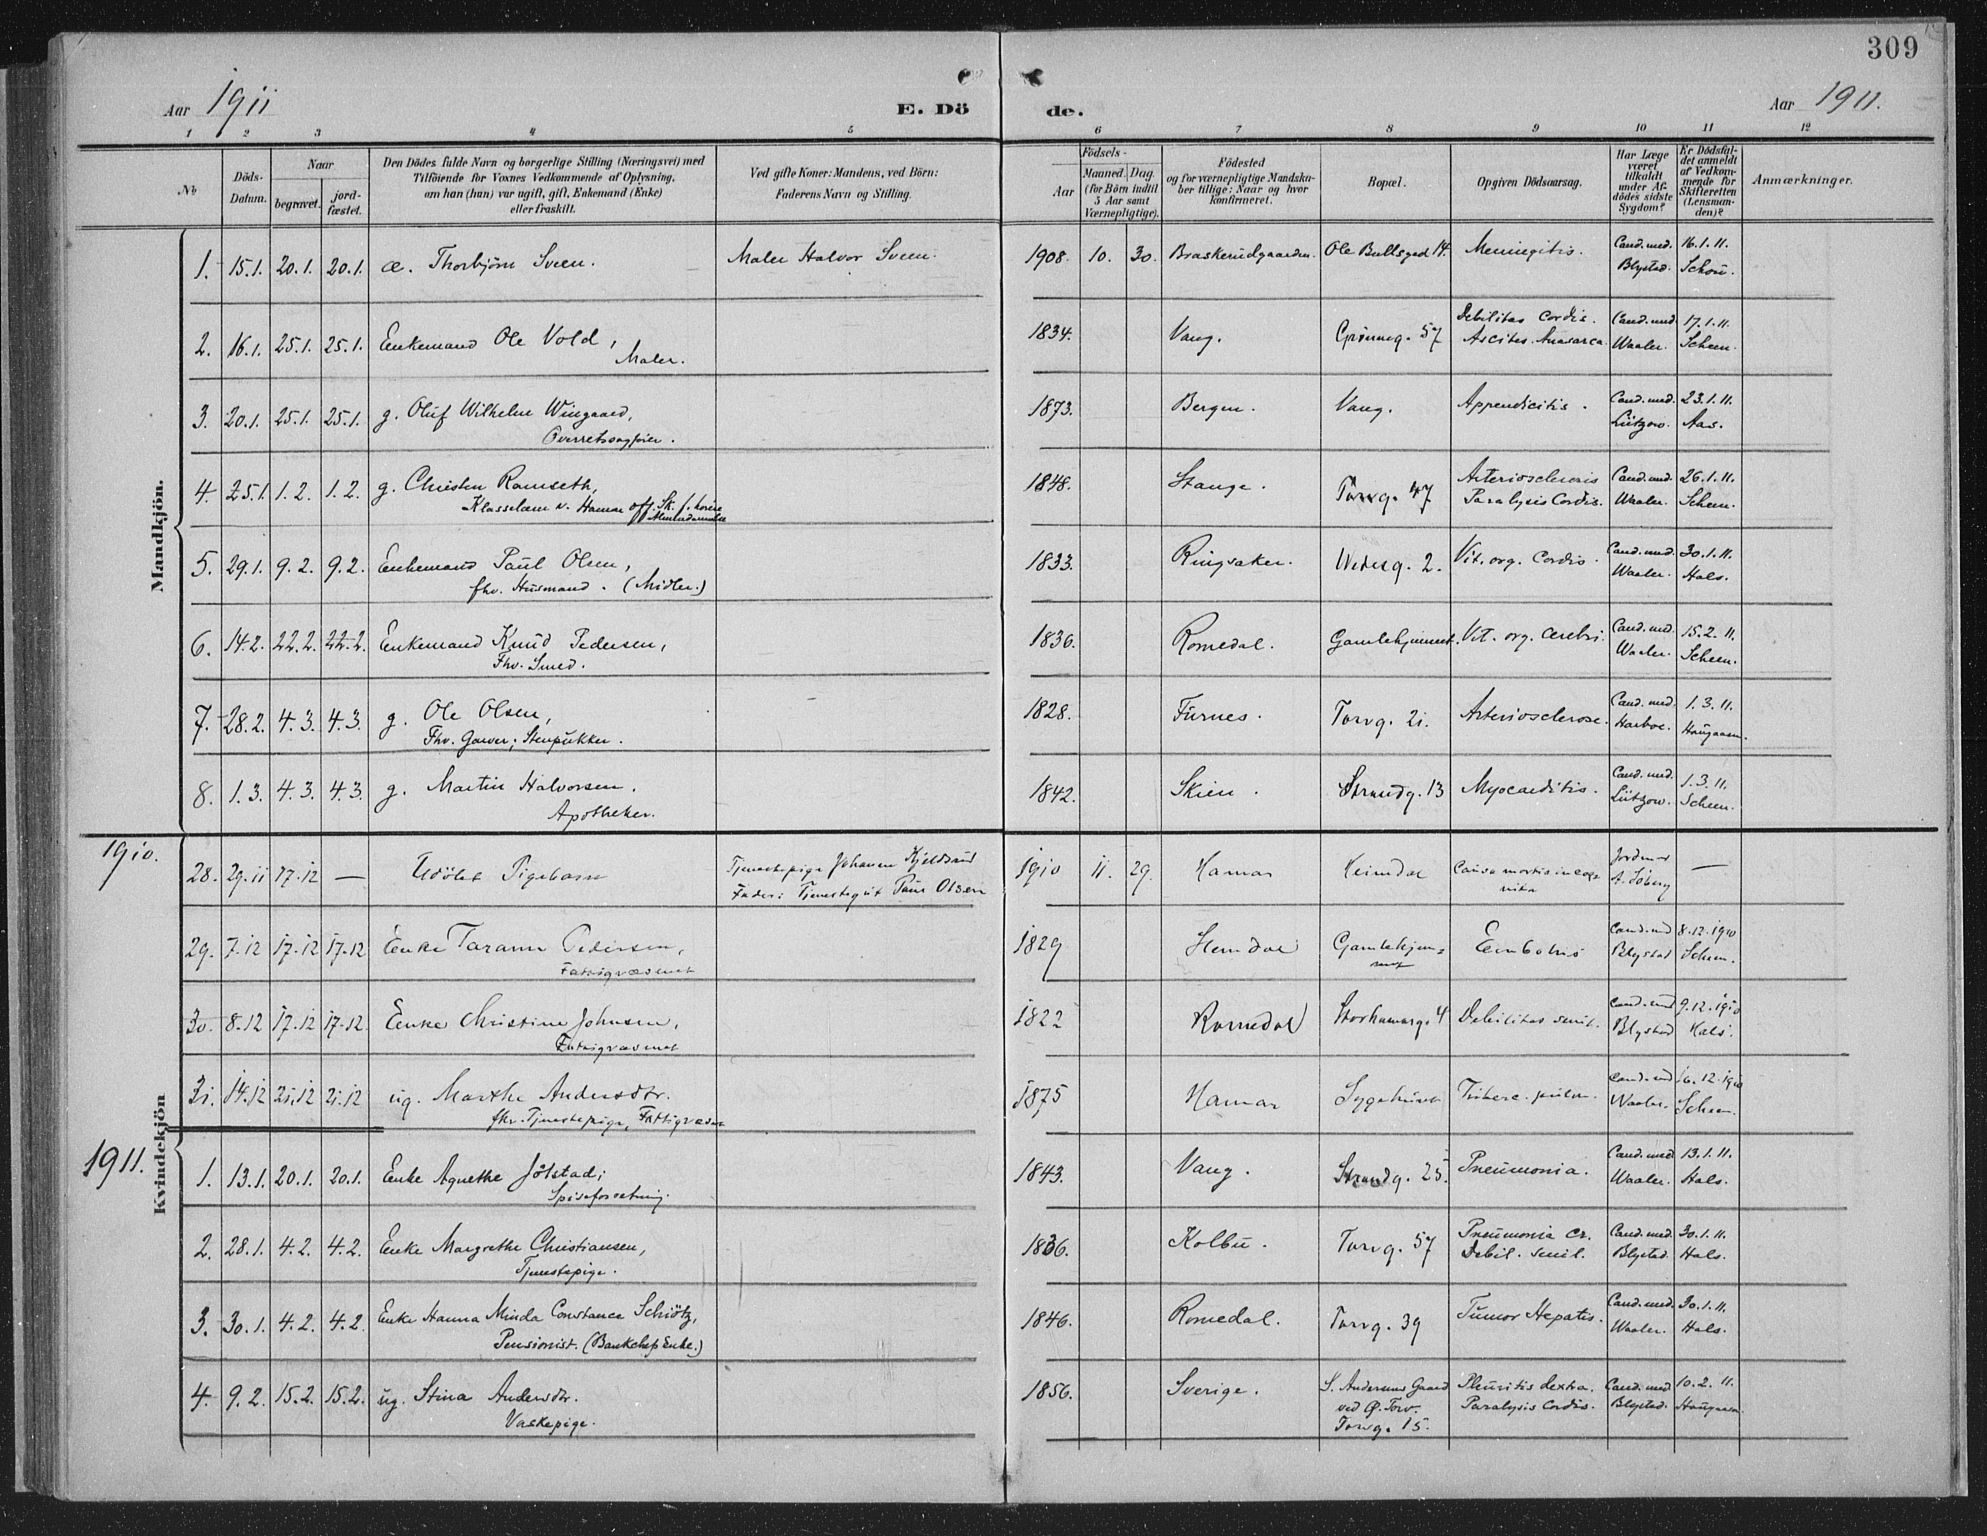 309
Aar 1911
E. Dö
de.
Aar 1911.
1 2 3 4 5 6 7 8 9 10 11 12
No
Döds-Datum.
Naar
begravet.
jord-fæstet.
Den Dödes fulde Navn og borgerlige Stilling (Næringsvei) med
Tilföiende for Voxnes Vedkommende af Oplysning,
om han (hun) var ugift, gift, Enkemand (Enke)
eller fraskilt.
Ved gifte Koner: Mandens, ved Börn:
Faderens Navn og Stilling.
Födsels-
Aar
Maaned. Dag.
(for Börn indtil
5 Aar samt
Værnepligtige).
Födested
og for værnepligtige Mandska-
ber tillige: Naar og hvor
konfirmeret.
Bopæl.
Opgiven Dödsaarsag.
Har Læge
været
tilkaldt
under Af-
dödes sidste
Sygdom?
Er Dödsfal-
det anmeldt
af Vedkom-
mende for
Skifteretten
(Lensman-
den)?
Anmærkninger.
Mandkjön.
1. 15.1. 20.1. 20.1. æ. Thorbjørn Sveen. Maler Halvor Sveen. 1908. 10. 30. Braskerudgaarden. Ole Bullsgad 14. Meningitis. Cand. med. Blystad. 16.1.11. Schou.
2. 16.1. 25.1. 25.1. Enkemand Ole Vold, Maler. 1834. Vang. Grønneg. 57 Debilitas Cordis. Ascites. Anasarca. Cand. med Waaler. 17.1.11. Scheen.
3. 20.1. 25.1. 25.1. g. Oluf Wilhelm Wingaard, Overretssagfører. 1873. Bergen. Vang. Appendicitis. Cand. med. Lützow. 23.1.11. Aas.
4. 25.1. 1.2. 1.2. g. Christen Ramseth, Klasselærer v. Hamar off. Sk. f. høiere Almendannelse 1848. Stange. Torvg. 47 Arteriosclerosis Paralysis Cordis. Cand. med Waaler. 26.1.11. Scheen.
5. 29.1. 9.2. 9.2. Enkemand Paul Olsen, fhv. Husmand. (Midler.) 1833. Ringsaker. Vedesg. 2. Vit. org. Cordis. Cand. med. Waaler. 30.1.11. Hals.
6. 14.2. 22.2. 22.2. Enkemand Knud Pedersen, Fhv. Smed. 1836. Romedal. Gamlehjemmet. Vit. org. cerebri. Cand. med. Waaler. 15.2.11. Scheen.
7. 28.2. 4.3. 4.3. g. Ole Olsen, Fhv. Garver; Stenpukker. 1828. Furnes. Torvg. 21. Arteriosclerose. Cand. med. Harboe. 1.3.11. Haugaasen.
8. 1.3. 4.3. 4.3. g. Martin Halvorsen. Apotheker. 1842. Skien. Strandg. 13 Myocarditis. Cand. med. Lützow. 1.3.11. Scheen.
1910.
Kvindekjön
28. 29.11 17.12 — Udöbt Pigebarn Tjenestepige Johanne Kjeldsrud Fader: Tjenestegut Paul Olsen 1910 11. 29. Hamar Heimdal Causa mortis incognita Jordmor A. Söberg —
29. 7.12 17.12 17.12 Enke Taran Pedersen, Fattigvæsenet 1829 Hemdal Gamlehjemmet Embolus Cand. med Blystad 8.12.1910 Scheen.
30. 8.12 17.12 17.12. Enke Christine Johnsen, Fattigvæsenet 1822 Romedal Storhamarg. 4 Debilitas senil. Cand. med Blystad 9.12.1910 Hals.
31. 14.12 21.12 21.12 ug. Marthe Andersdtr. fhv. Tjenestepige, Fattigvæsen 1875 Hamar Sygehuset Tuberc. pulm. Cand. med Waaler. 16.12.1910 Scheen.
1911.
1. 13.1. 20.1. 20.1. Enke Agnethe Jölstad; Spiseforretning. 1843. Vang. Strandg. 25. Pneumonia. Cand. med Waaler. 13.1.11. Hals.
2. 28.1. 4.2. 4.2. Enke Margrethe Christiansen, Tjenestepige. 1836. Kolbu. Torvg. 57 Pneumonia cr. Debil. senil. Cand. med. Blystad. 30.1.11. Hals.
3. 30.1. 4.2. 4.2. Enke Hanna Minda Constance Schiötz, Pensionist. (Bankchefs Enke.) 1846. Romedal. Torvg. 39 Tumor Hepatis. Cand. med. Waaler. 30.1.11. Hals.
4. 9.2. 15.2. 15.2. ug. Stina Andersdtr. Vaskepige. 1856. Sverige. S. Andersens Gaard ved Ø. Torv. Torvg. 15. Pleuritis dextra. Paralysis Cordis. Cand. med Blystad. 10.2.11. Haugaasen.